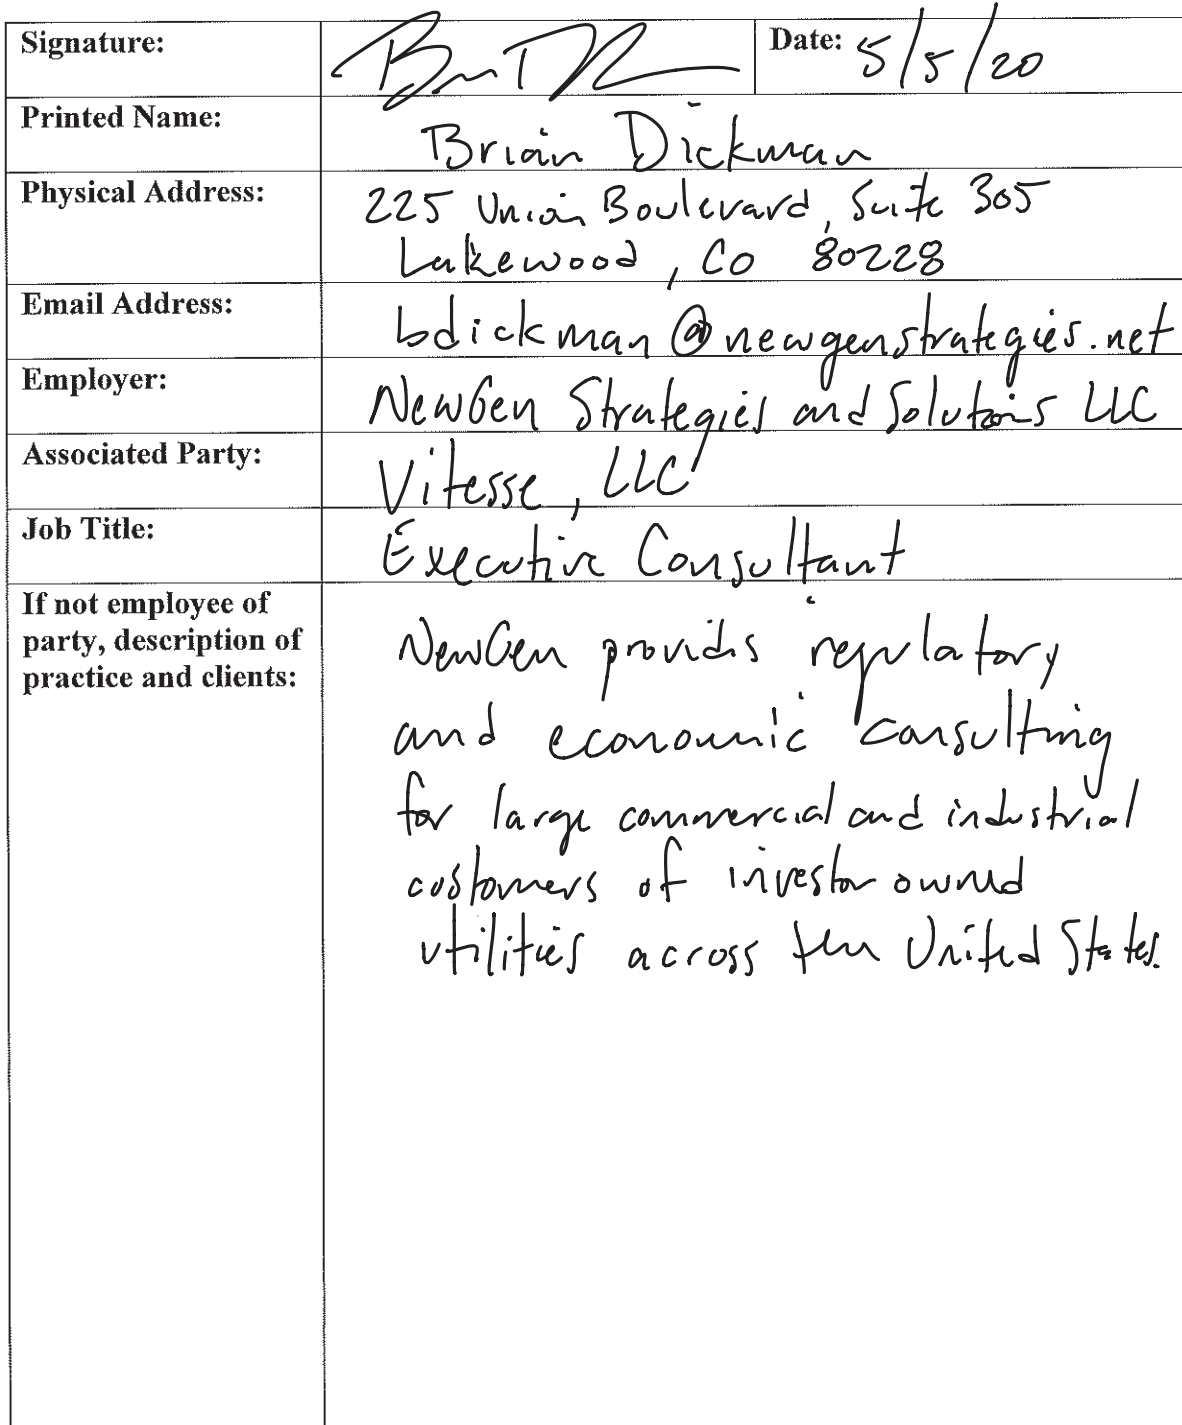 Signature: Date: 5/5/20
Printed Name: Brian Dickman
Physical Address: 225 Union Boulevard, Suite 305
Lakewood, CO 80228
Email Address: bdickman@newgenstrategies.net
Employer: NewGen Strategies and Solutions LLC
Associated Party: Vitesse, LLC
Job Title: Executive Consultant
If not employee of
party, description of
practice and clients:
NewGen provides regulatory
and economic consulting
for large commercial and industrial
customers of investor owned
utilities across the United States.